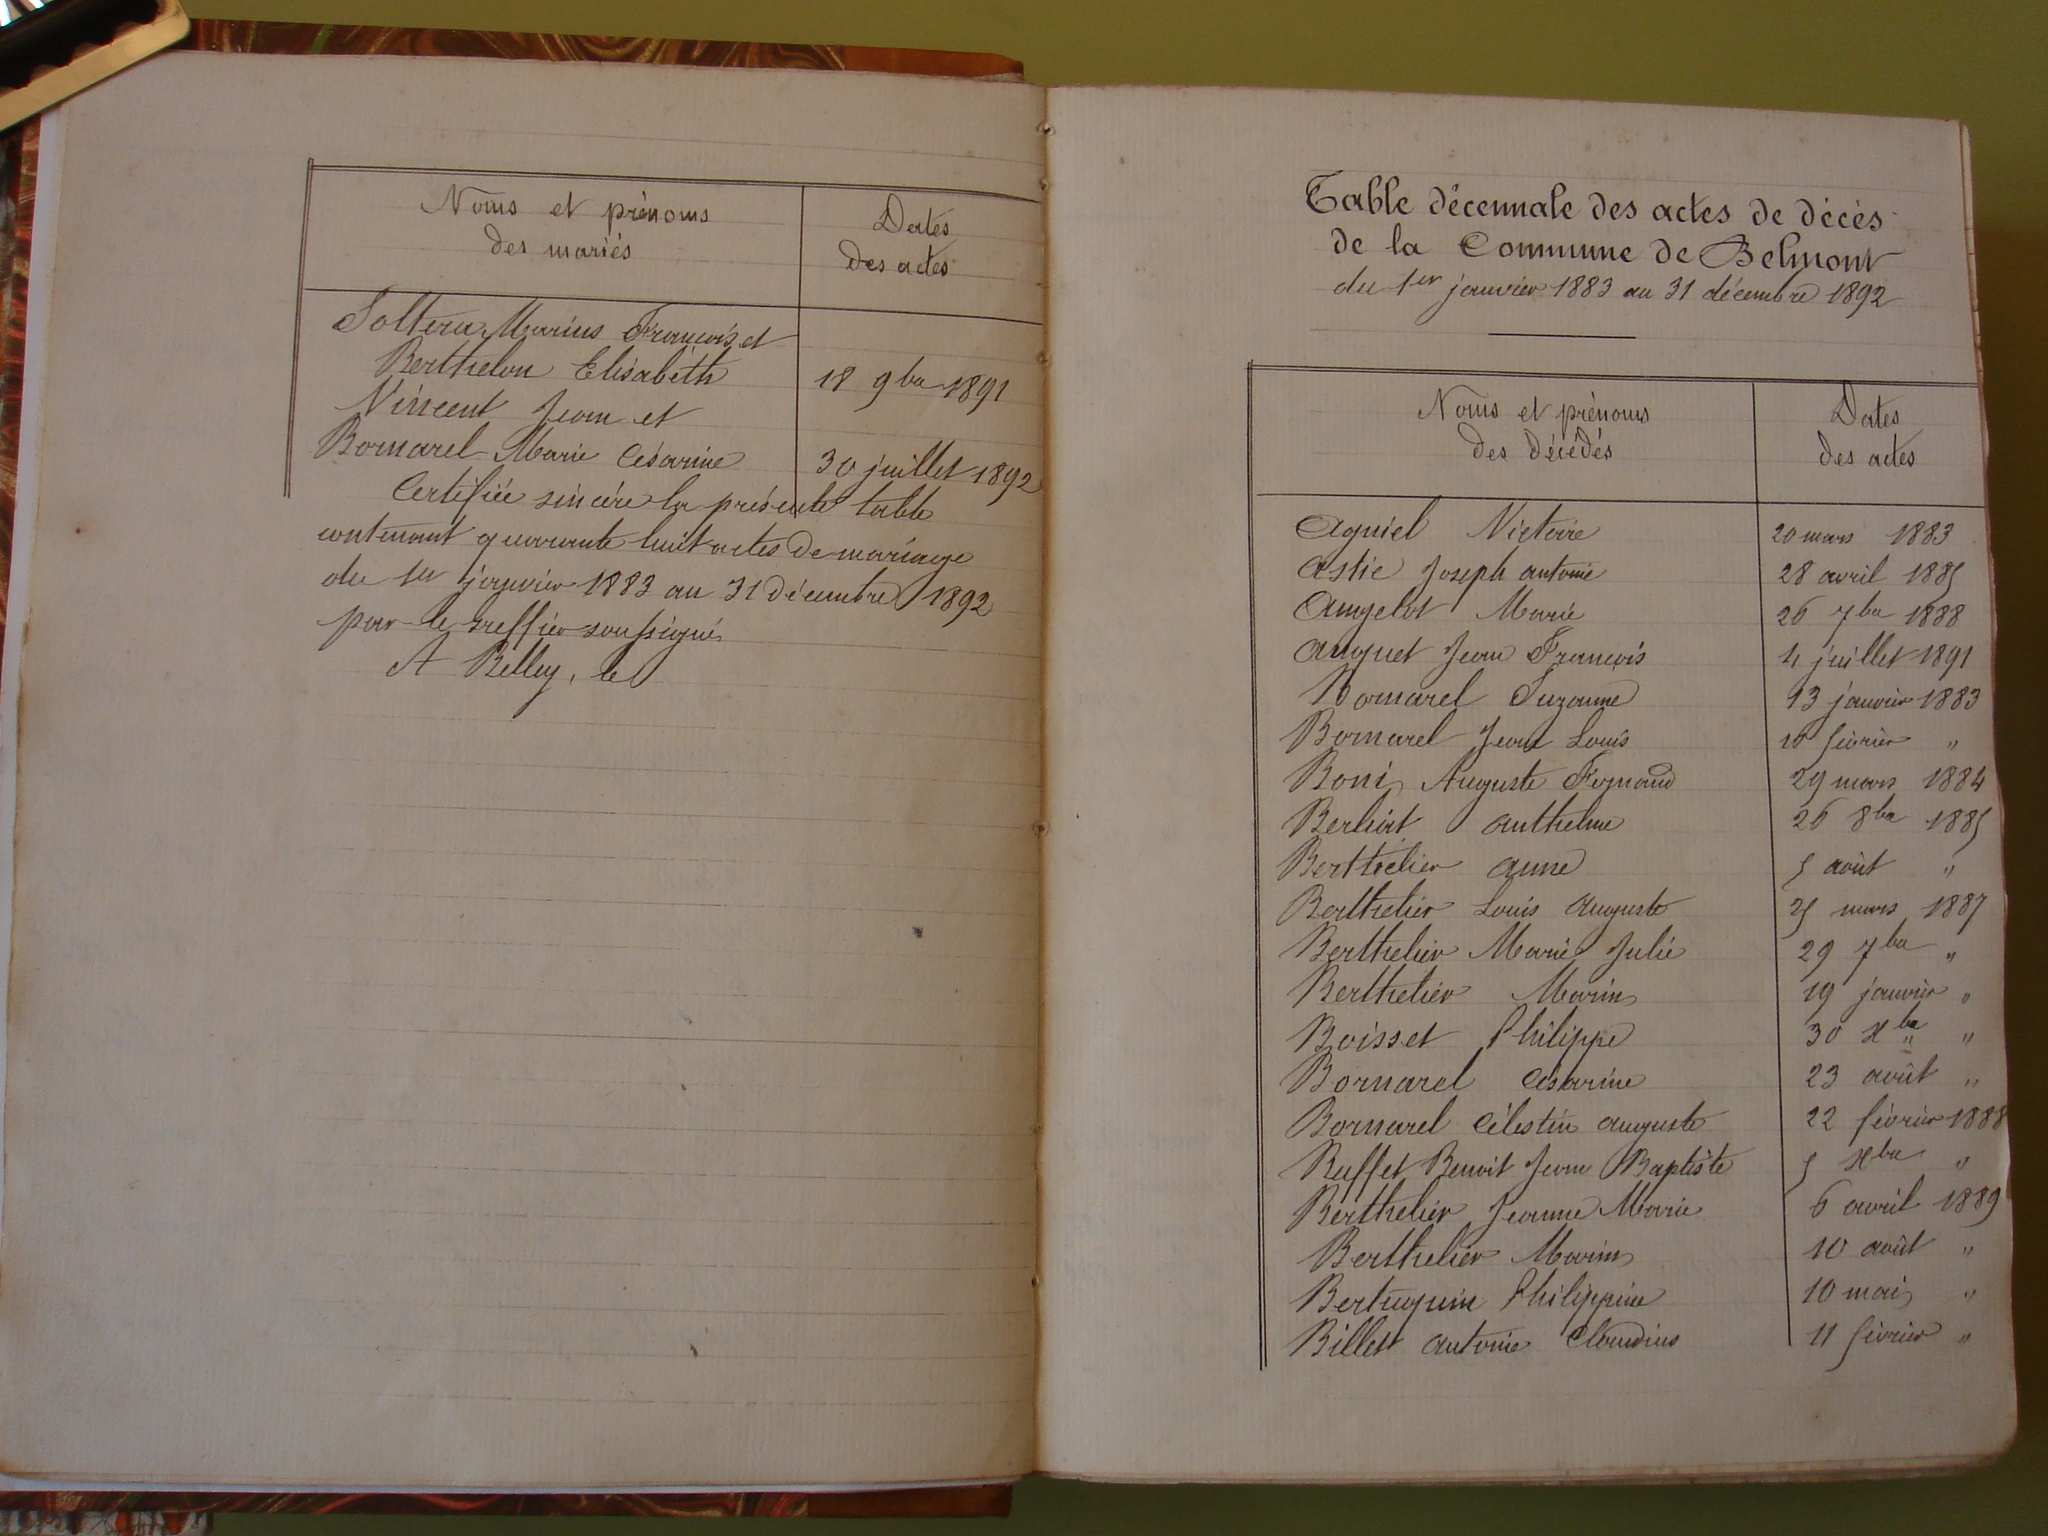 Noms et prénoms
des mariés
Dates
des actes
Marius François et
Berthelon Elisabeth
18 9bre 1891
Vincent Jean et
Bornarel Marie Césarine
30 juillet 1892
Certifiée sincère la présente table
contenant quarante huit actes de mariage
du 1er janvier 1883 au 31 décembre 1892
par le greffier soussigné
A Belley, le
Table décennale des actes de décès
de la Commune de Belmont
du 1er janvier 1883 au 31 décembre 1892
Noms et prénoms
des décédés
Dates
des actes
Agniel Victoire 20 mars 1883
Astie Joseph Antoine 28 avril 1885
Angelot Marie 26 7bre 1888
Anquet Jean François 4 juillet 1891
Bornarel Suzanne 13 janvier 1883
Bornarel Jean Louis 10 février "
Boni Auguste Fernand 29 mars 1884
Berliat Anthelme 26 8bre 1885
Berthelier Anne 5 août "
Berthelier Louis Auguste 25 mars 1887
Berthelier Marie Julie 29 7bre "
Berthelier Marin 19 janvier "
Boisset Philippe 30 Xbre "
Bornarel Césarine 23 août "
Bornarel Célestin Auguste 22 février 1888
Buffet Benoit Jean Baptiste 5 Xbre "
Berthelier Jeanne Marie 6 avril 1889
Berthelier Marin 10 août "
Philippine 10 mai "
Billet Antoine Claudius 11 février "